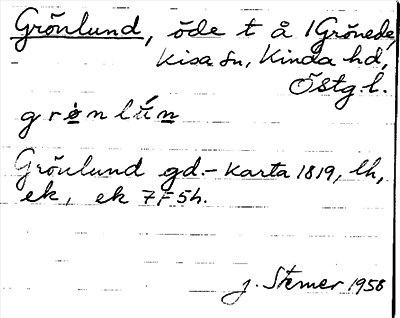 Grönlund, öde t å 1 Grönede,
Kisa sn, Kinda hd,
Östg. l.
grønlún
Grönlund gd. – Karta 1819, lh,
ek, ek 7F5h.
J. Sterner 1958